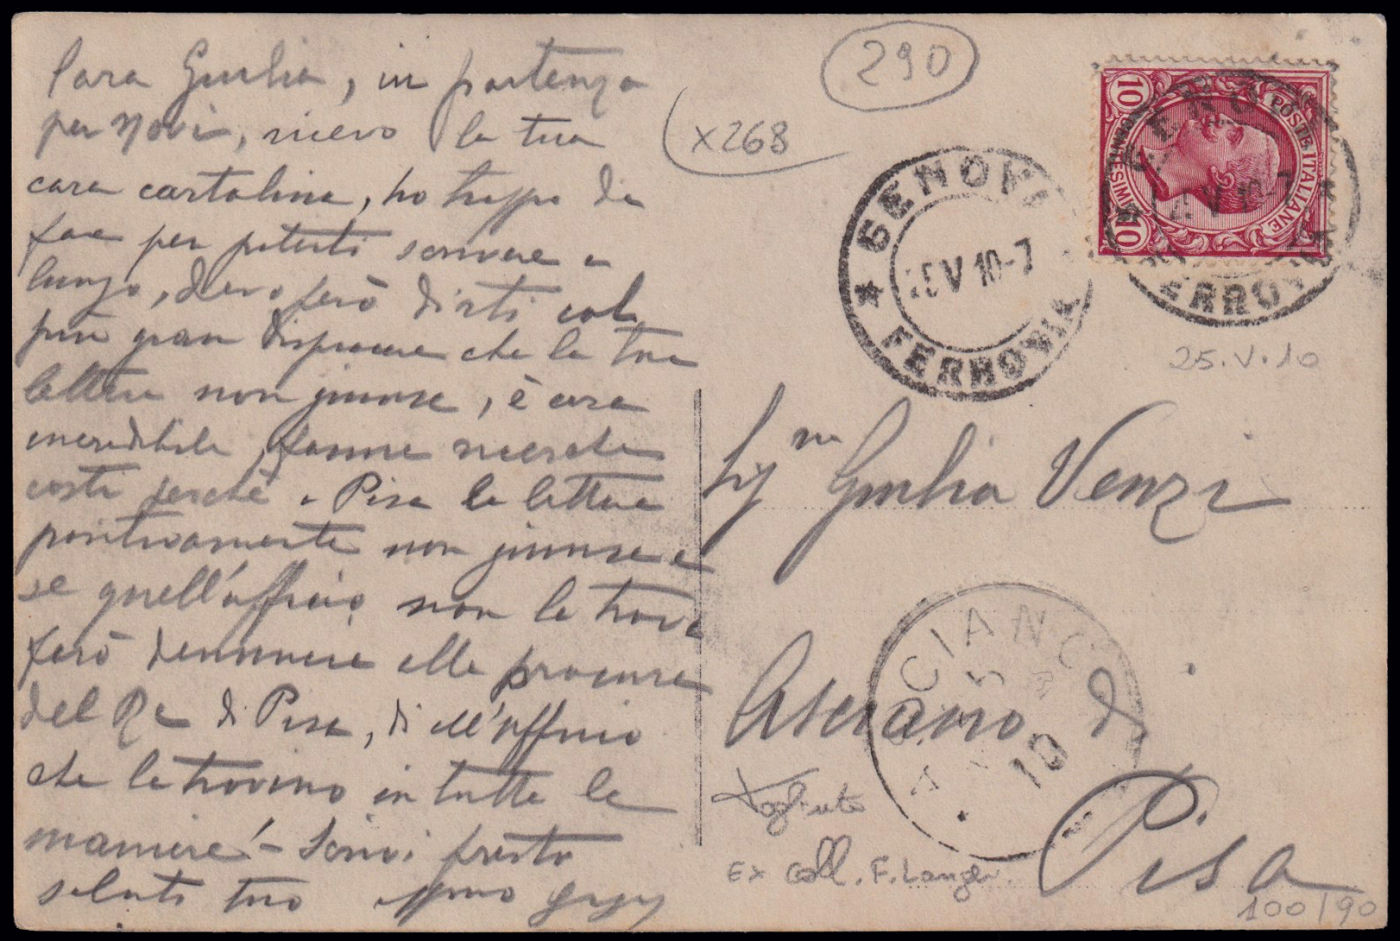 Cara Giulia, in partenza
per Novi, ricevo la tua
cara cartolina, ho troppo da
fare per poterti scrivere a
lungo, devo però dirti col
più gran dispiacere che la tua
lettera non giunse, è cosa
incredibile, fanne ricerche
costì perchè a Pisa la lettera
positivamente non giunse e
se quell'ufficio non la trova
farò denuncia alla procura
del Re di Pisa, dì all'ufficio
che la trovino in tutte le
maniere! - Scrivi presto
saluti tuo
290
x268
POSTE ITALIANE
10 CENTESIMI 10
GENOVA
25 V 10-7
FERROVIA
FERROVIA
25.V.10
Signa Giulia Venzi
Asciano di
Pisa
ASCIANO
10
Togliuto
Ex Coll. F. Langer.
100/90